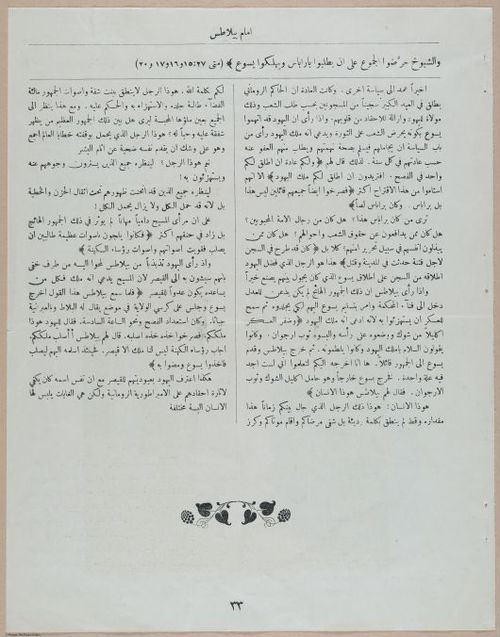 امام بيلاطس
والشيوخ حرّضوا الجموع على ان يطلبوا باراباس ويهلكوا يسوع ﴾ (متى ٢٧:١٥و١٦و١٧ و٢٠)
اخيراً عمد الى سياسة اخرى. وكانت العادة ان الحاكم الروماني
يطلق في العيد الكبير سجيناً من المسجونين بحسب طلب الشعب وذلك
موالاة لليهود وازالة للاحقاد من قلوبهم. واذا رأى ان اليهود قد اتهموا
يسوع بكونه يحرض الشعب على الثورة ويدعي انه ملك اليهود رأى من
باب السياسة ان يجاملهم فيسلم بصحة تهمتهم ويطلب منهم العفو عنه
حسب عادتهم في كل سنة. لذلك قال لهم ﴿ولكم عادة ان اطلق لكم
واحد في الفصح. افتريدون ان اطلق لكم ملك اليهود﴾ الا انهم
استاءوا من هذا الاقتراح اكثر ﴿فصرخوا ايضاً جميعهم قائلين ليس هذا
بل باراباس. وكان باراباس لصاً﴾
ترى من كان باراباس هذا؟ هل كان من رجال الامة المحبوبين؟
هل كان ممن يدافعون عن حقوق الشعب واحوالهم؟ هل كان ممن
يبذلون انفسهم في سبيل تحرير امتهم؟ كلا بل ﴿كان قد طرح في السجن
لاجل فتنة حدثت في المدينة وقتل﴾ هذا هو الرجل الذي فضل اليهود
اطلاقه من السجن على اطلاق يسوع الذي كان يجول بينهم يصنع خيراً
واذا رأى بيلاطس ان ذلك الجمهور الهائج لم يكن يذعن للعدل
دخل الى فناء المحكمة وامر بتسليم يسوع اليهم لكي يجلدوه ثم سمح
للعسكر ان يستهزئوا به لانه ادعى انه ملك اليهود ﴿وضفر العسكر
اكليلا من شوك ووضعوه على رأسه والبسوه ثوب ارجوان. وكانوا
يقولون السلام ياملك اليهود وكانوا يلطمونه. ثم خرج بيلاطس وقدم
يسوع الى الجمهور قائلا. ها انا اخرجه اليكم لتعلموا أني لست اجد
فيه علة واحدة. فخرج يسوع خارجاً وهو حامل اكليل الشوك وثوب
الارجوان. فقال لهم بيلاطس هوذا الانسان﴾
هوذا الانسان! هوذا ذلك الرجل الذي جال بينكم زماناً هذا
مقداره وقط لم ينطق بكلمة رديئة بل شفى مرضاكم واقام موتاكم وكرز
لكم بكلمة الله. هوذا الرجل لاينطق ببنت شفة واصوات الجمهور مالئة
الفضاء. طالبة جلده والاستهزاء به والحكم عليه. ومع هذا ينظر الى
الجميع بعين ملؤها المحبة ليرى هل بين ذلك الجمهور العظيم من يظهر
شفقة عليه وحباً له؟ هوذا الرجل الذي يحمل بوقفته خطايا العالم اجمع
وهو على وشك ان يقدم نفسه ضحية عن آثام البشر
نعم هوذا الرجل؟ لينظره جميع الذين يسترون وجوههم عنه
ويستهزئون به!
لينظره جميع الذين قد انحنت ظهورهم تحت اثقال الحزن والخطية
بل لانه قد حمل الكل ولا يزال يحمل الكل!
على ان مرأى المسيح دامياً مهاناً لم يؤثر في ذلك الجمهور الهائج
بل زاد في حنقهم اكثر ﴿فكانوا يلجون باصوات عظيمة طالبين ان
يصلب فقويت اصواتهم واصوات رؤساء الكهنة﴾
واذ رأى اليهود تذبذباً من بيلاطس لمحوا اليه من طرف خفي
بانهم سيشون به الى القيصر لان المسيح يدعي انه ملك فكل من
يساعده يكون عدواً للقيصر ﴿فلما سمع بيلاطس هذا القول اخرج
يسوع وجلس على كرسي الولاية في موضع يقال له البلاط وبالعبرانية
جباثا. وكان استعداد الفصح ونحو الساعة السادسة. فقال لليهود هوذا
ملككم. فصرخوا خذه خذه اصلبه. قال لهم بيلاطس أأصلب ملككم.
اجاب رؤساء الكهنة ليس لنا ملك الا قيصر. فحينئذ اسلمه اليهم ليصلب
فأخذوا يسوع ومضوا به﴾
هكذا اعترف اليهود بعبوديتهم للقيصر مع ان نفس اسمه كان يكفي
لاثارة احقادهم على الامبراطورية الرومانية ولكن هي الغايات يلبس لها
الانسان البسة مختلفة
٣٣